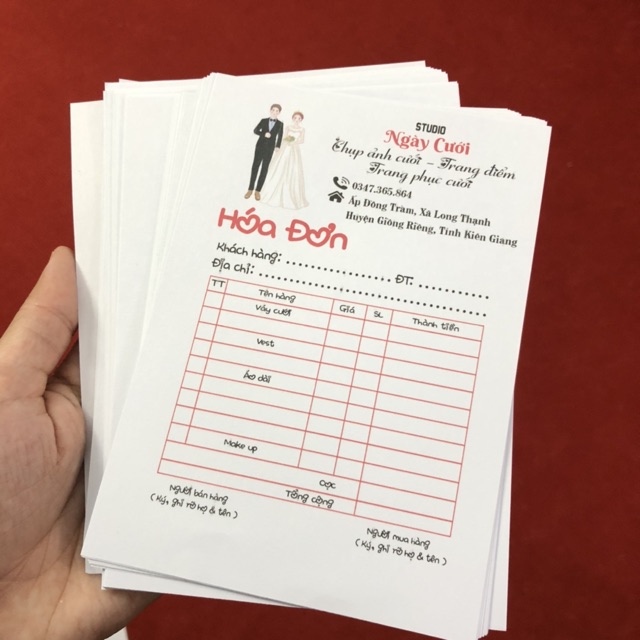 STUDIO
Ngày Cưới
Chụp ảnh cưới - Trang điểm
Trang phục cưới
0347.365.864
Ấp Đồng Tràm, Xã Long Thạnh
Huyện Giồng Riềng, Tỉnh Kiên Giang
Hóa Đơn
Khách hàng: ĐT:
Địa chỉ:
TT Tên hàng Giá SL Thành tiền
Váy cưới
Vest
Áo dài
Make up
Cọc
Tổng cộng
Người bán hàng
(Ký, ghi rõ họ & tên)
Người mua hàng
(Ký, ghi rõ họ & tên)